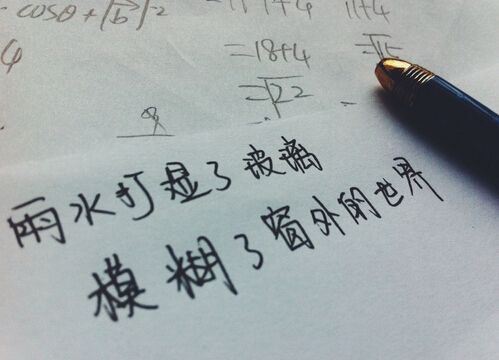 cosθ+|b|²
4
11+4
=18+4
=√15
=√22
雨水打湿了玻璃
模糊了窗外的世界